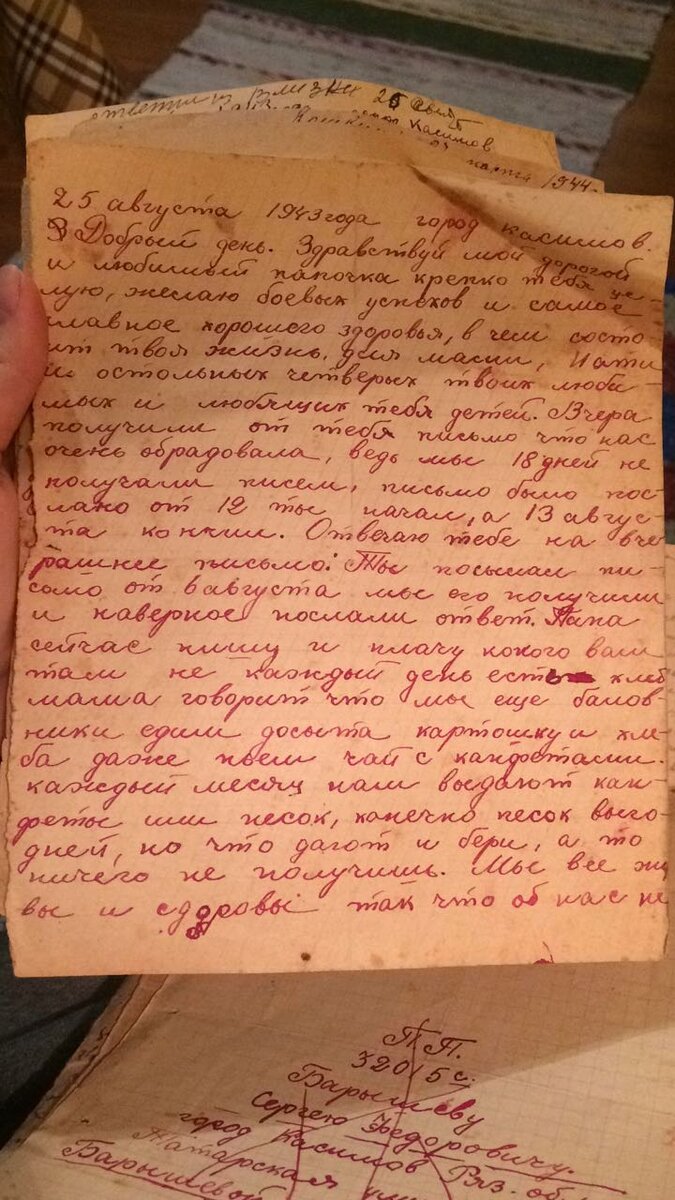 ответил 26
Касимов
марта 1944
25 августа 1943 года город Касимов.
Добрый день. Здравствуй мой дорогой
и любимый папочка крепко тебя це-
лую, желаю боевых успехов и самое
главное хорошего здоровья, в чем состо
ит твоя жизнь для мамы,
и остольных четверых твоих люби-
мых и любящих тебя детей. Вчера
получили от тебя письмо что нас
очень обрадовала, ведь мы 18 дней не
получали писем, письмо было пос-
лано от 12 ты начал, а 13 авгус-
та кончил. Отвечаю тебе на вче
рашнее письмо: Ты посылал пи-
сьмо от 6 августа мы его получили
и наверное послали ответ. Папа
сейчас пишу и плачу кокого вам
там не каждый день есть хлеб
мама говорит что мы еще балов-
ники едим досыта картошку и хле-
ба даже пьем чай с канфетами.
каждый месяц нам выдают кан-
феты или песок, канечно песок выго-
дней, но что дают и бери, а то
ничего не получишь. Мы все жи
вы и сдоровы так что об нас не
П П.
32015 с.
Барышеву
Сергею Федоровичу.
город Касимов Ряз. об
Татарская ули
Барышевой